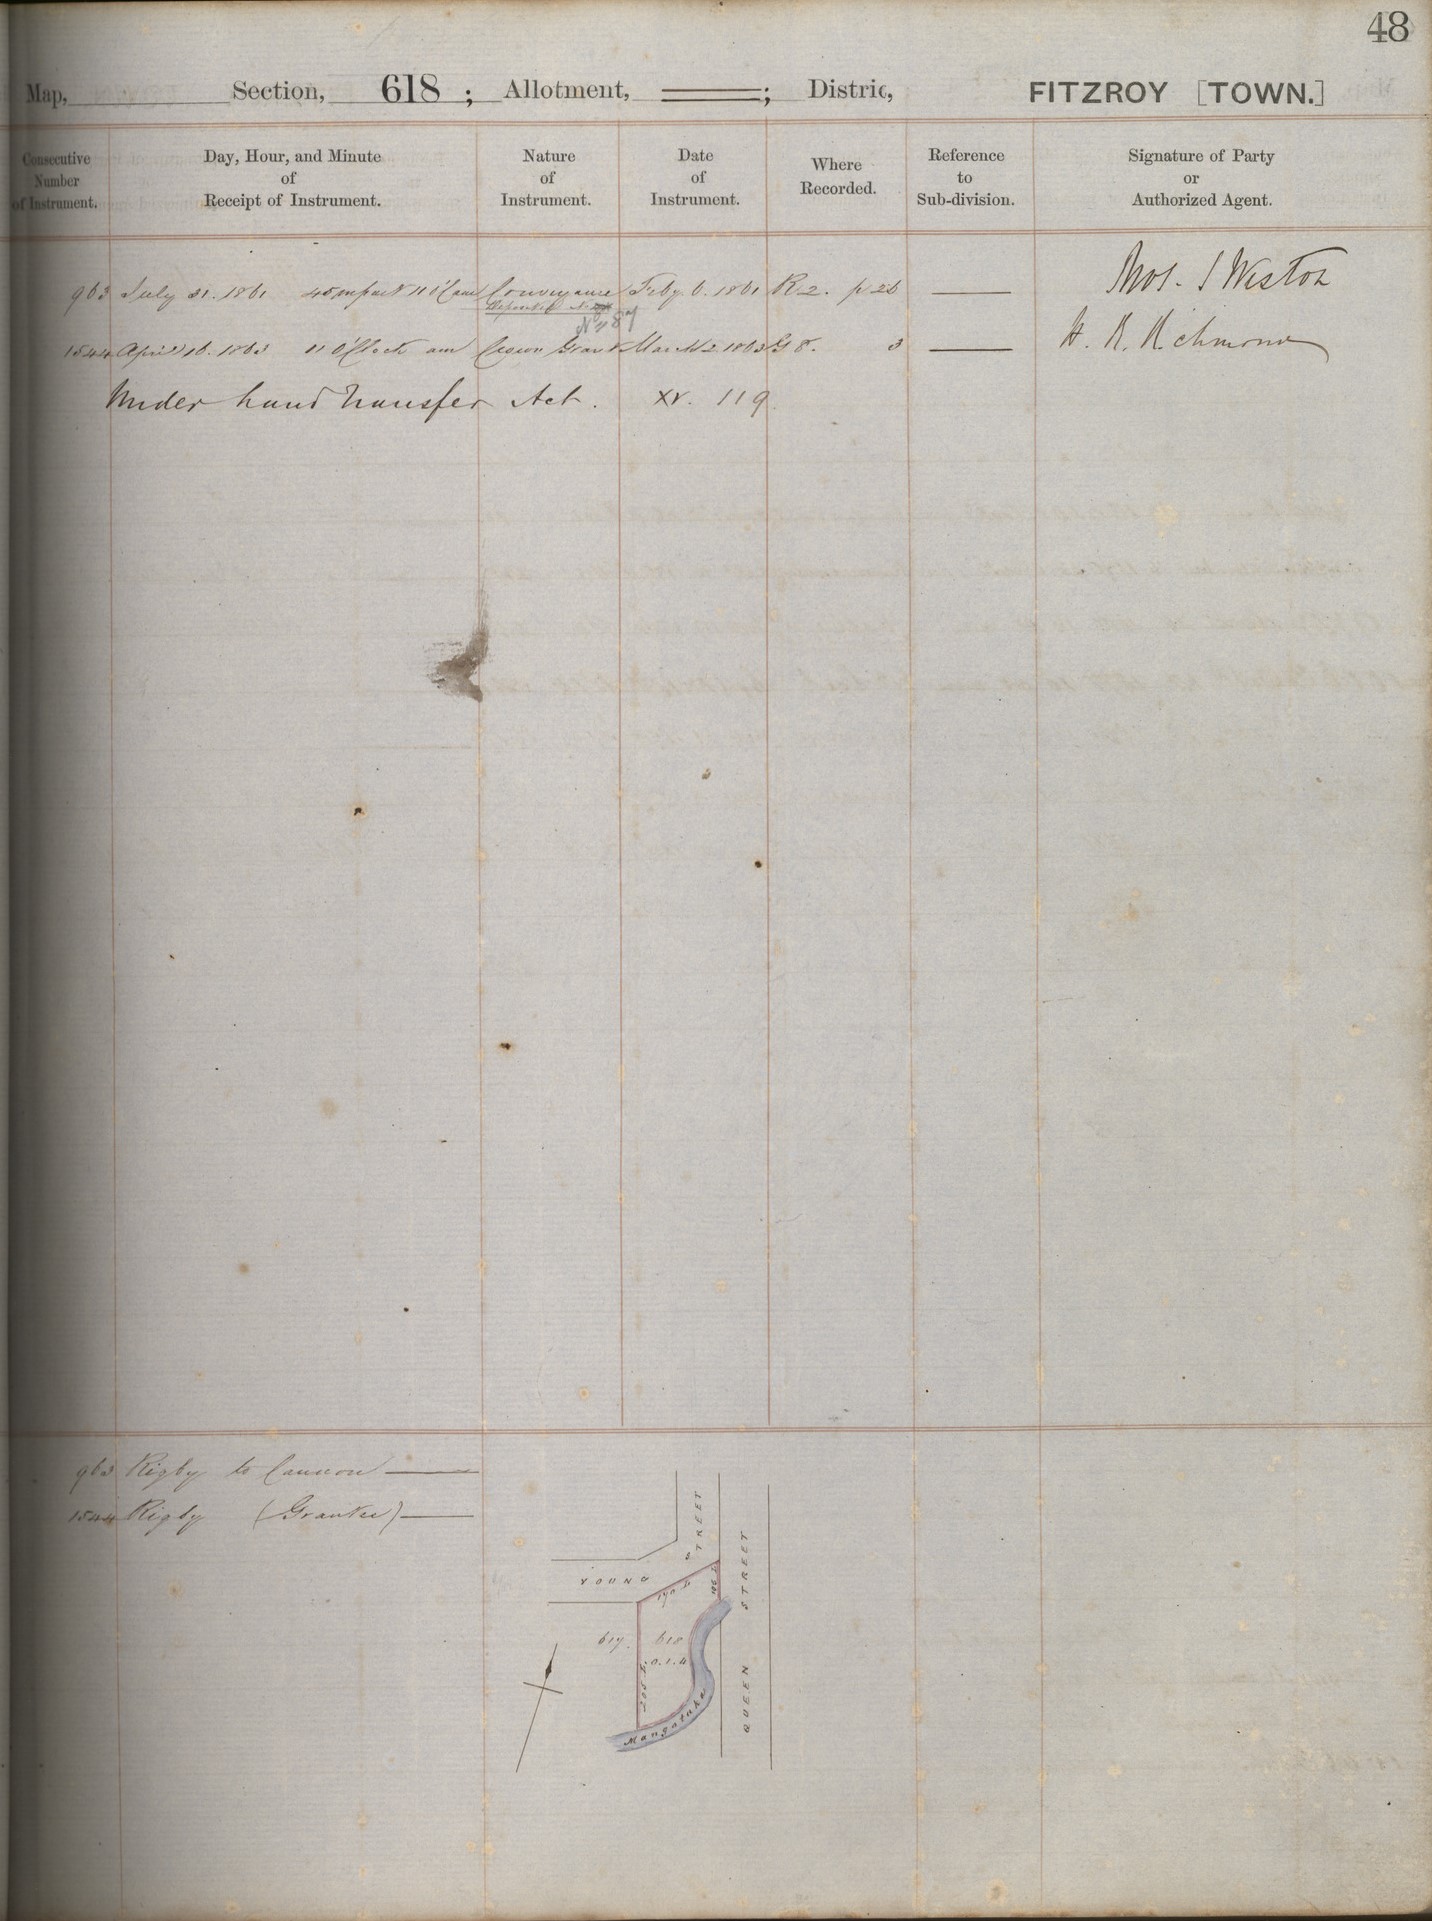 48
Map, Section, 618 ; Allotment, ; Distric, FITZROY [TOWN.]
Consecutive Number of Instrument.
Day, Hour, and Minute of Receipt of Instrument.
Nature of Instrument.
Date of Instrument.
Where Recorded.
Reference to Sub-division.
Signature of Party or Authorized Agent.
963 July 31. 1861 45 m past 11 O'C am Conveyance Feby 6. 1861 R 2. p 26 Thos. S Weston
Deposited No
No 87
1544 April 16. 1863 11 O'Clock am Crown Grant March 2 1863 G 8. 3 H. R. Richmond
Under Land Transfer Act. XV. 119
963 Rigby to Cannon
1544 Rigby (Grantee)
YOUNG STREET
QUEEN STREET
170 L
617. 618
0.1.4
205 L
Mangatuke